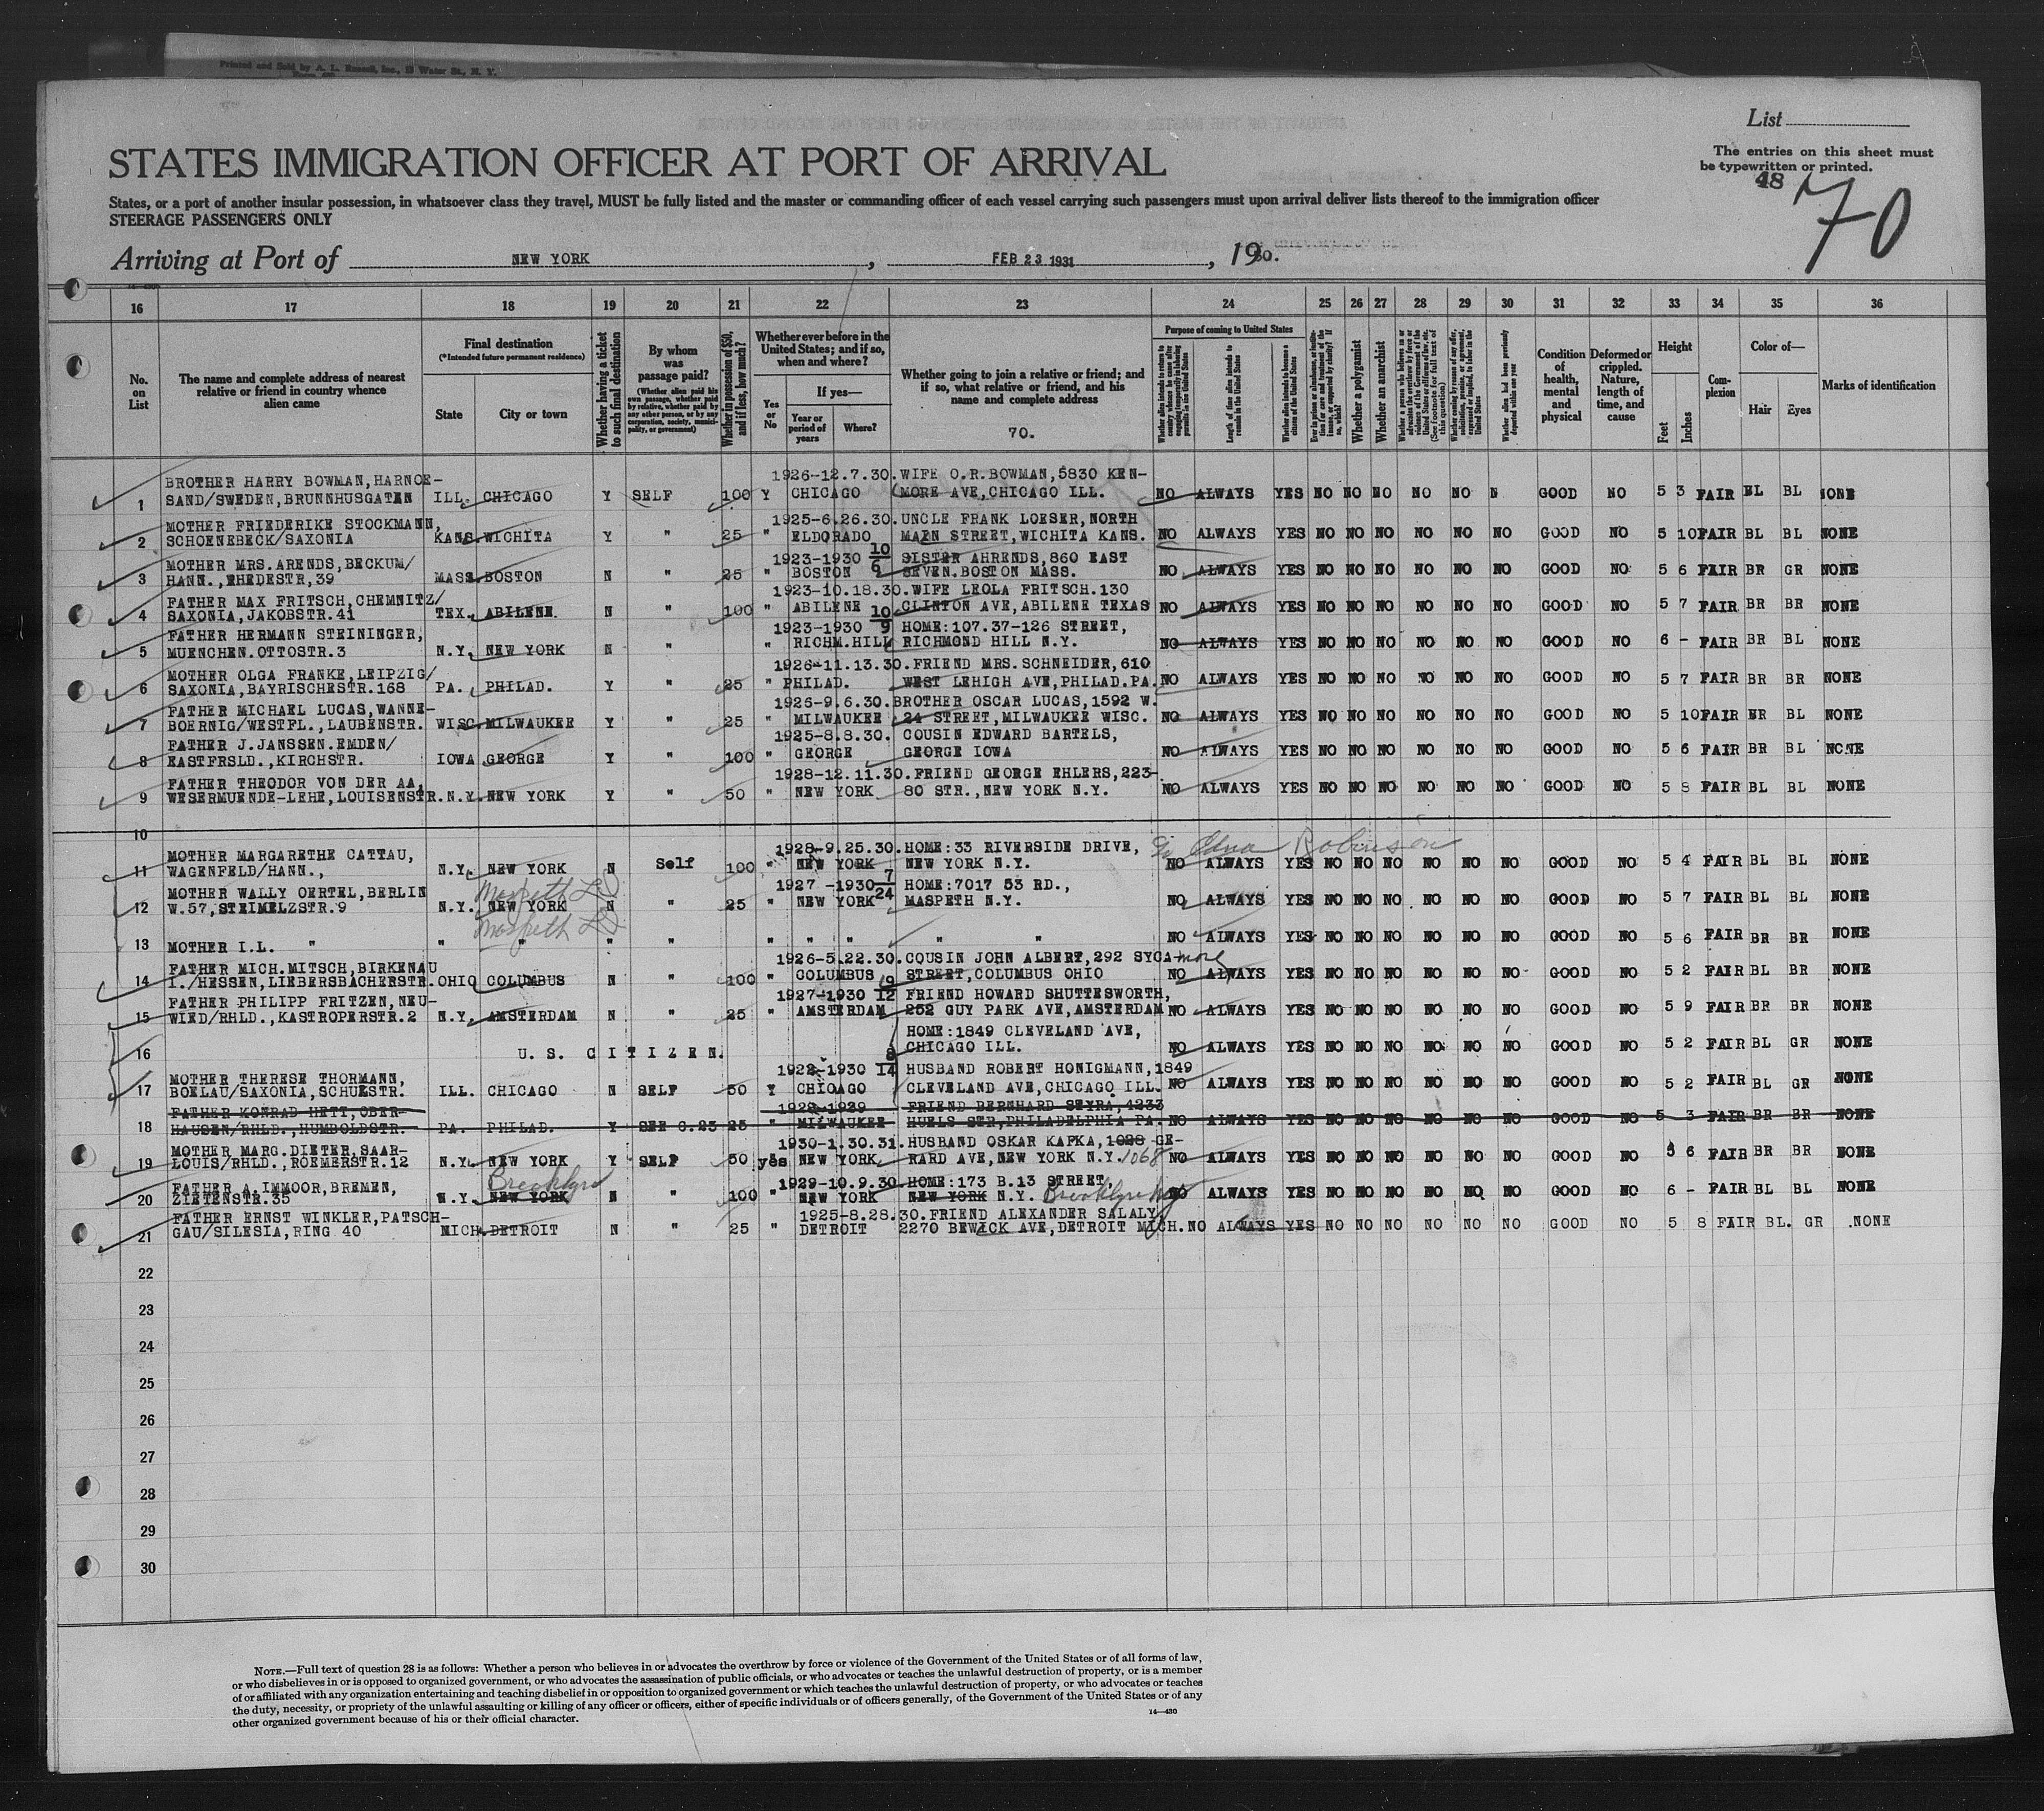 Printed and Sold by A. L. Russell, Inc., 15 Water St., N. Y.
List
STATES IMMIGRATION OFFICER AT PORT OF ARRIVAL
The entries on this sheet must
be typewritten or printed.
48
70
States, or a port of another insular possession, in whatsoever class they travel, MUST be fully listed and the master or commanding officer of each vessel carrying such passengers must upon arrival deliver lists thereof to the immigration officer
STEERAGE PASSENGERS ONLY
Arriving at Port of NEW YORK, FEB 23 1931, 1930.
16 17 18 19 20 21 22 23 24 25 26 27 28 29 30 31 32 33 34 35 36
No. on List
The name and complete address of nearest relative or friend in country whence alien came
Final destination
(*Intended future permanent residence)
State
City or town
Whether having a ticket to such final destination
By whom was passage paid?
(Whether alien paid his own passage, whether paid by relative, whether paid by any other person, or by any corporation, society, municipality, or government)
Whether in possession of $50, and if less, how much?
Whether ever before in the United States; and if so, when and where?
Yes or No
If yes—
Year or period of years
Where?
Whether going to join a relative or friend; and if so, what relative or friend, and his name and complete address
70.
Purpose of coming to United States
Length of time alien intends to remain in the United States
Whether alien intends to become a citizen of the United States
Whether a polygamist
Whether an anarchist
Whether alien had been previously deported within one year
Condition of health, mental and physical
Deformed or crippled. Nature, length of time, and cause
Height
Feet
Inches
Complexion
Color of—
Hair
Eyes
Marks of identification
BROTHER HARRY BOWMAN, HARNOE- 1926-12.7.30. WIFE O.R. BOWMAN, 5830 KEN-
1 SAND/SWEDEN, BRUNNHUSGATEN ILL. CHICAGO Y SELF 100 Y CHICAGO MORE AVE, CHICAGO ILL. NO ALWAYS YES NO NO NO NO NO N GOOD NO 5 3 FAIR BL BL NONE
MOTHER FRIEDERIKE STOCKMANN, 1925-6.26.30. UNCLE FRANK LOESER, NORTH
2 SCHOENEBECK/SAXONIA KANS. WICHITA Y " 25 " ELDORADO MAIN STREET, WICHITA KANS. NO ALWAYS YES NO NO NO NO NO NO GOOD NO 5 10 FAIR BL BL NONE
MOTHER MRS. ARENDS, BECKUM/ 1923-1930 10/6 SISTER AHRENDS, 860 EAST
3 HANN., RHEDESTR, 39 MASS. BOSTON N " 25 " BOSTON SEVEN. BOSTON MASS. NO ALWAYS YES NO NO NO NO NO NO GOOD NO 5 6 FAIR BR GR NONE
FATHER MAX FRITSCH, CHEMNITZ/ 1923-10.18.30. WIFE LEOLA FRITSCH. 130
4 SAXONIA, JAKOBSTR. 41 TEX. ABILENE N " 100 " ABILENE CLINTON AVE, ABILENE TEXAS NO ALWAYS YES NO NO NO NO NO NO GOOD NO 5 7 FAIR BR BR NONE
FATHER HERMANN STEININGER, 1923-1930 10/9 HOME: 107.37-126 STREET,
5 MUENCHEN. OTTOSTR. 3 N.Y. NEW YORK N " " RICHM. HILL RICHMOND HILL N.Y. NO ALWAYS YES NO NO NO NO NO NO GOOD NO 6 - FAIR BR BL NONE
MOTHER OLGA FRANKE, LEIPZIG/ 1926-11.13.30. FRIEND MRS. SCHNEIDER, 610
6 SAXONIA, BAYRISCHESTR. 168 PA. PHILAD. Y " 25 " PHILAD. WEST LEHIGH AVE, PHILAD. PA. NO ALWAYS YES NO NO NO NO NO NO GOOD NO 5 7 FAIR BR BR NONE
FATHER MICHAEL LUCAS, WANNE- 1926-9.6.30. BROTHER OSCAR LUCAS, 1592 W.
7 BOERNIG/WESTFL., LAUBENSTR. WISC. MILWAUKEE Y " 25 " MILWAUKEE 24 STREET, MILWAUKEE WISC. NO ALWAYS YES NO NO NO NO NO NO GOOD NO 5 10 FAIR BR BL NONE
FATHER J. JANSSEN. EMDEN/ 1925-8.8.30. COUSIN EDWARD BARTELS,
8 EASTFRSLD., KIRCHSTR. IOWA GEORGE Y " 100 " GEORGE GEORGE IOWA NO ALWAYS YES NO NO NO NO NO NO GOOD NO 5 6 FAIR BR BL NONE
FATHER THEODOR VON DER AA, 1928-12.11.30. FRIEND GEORGE EHLERS, 223-
9 WESERMUENDE-LEHE, LOUISENSTR. N.Y. NEW YORK Y " 50 " NEW YORK 80 STR., NEW YORK N.Y. NO ALWAYS YES NO NO NO NO NO NO GOOD NO 5 8 FAIR BL BL NONE
10
Edna Robinson
MOTHER MARGARETHE CATTAU, 1928-9.25.30. HOME: 33 RIVERSIDE DRIVE,
11 WAGENFELD/HANN., N.Y. NEW YORK N Self 100 " NEW YORK NEW YORK N.Y. NO ALWAYS YES NO NO NO NO NO NO GOOD NO 5 4 FAIR BL BL NONE
Maspeth L I
MOTHER WALLY OERTEL, BERLIN 1927-1930 7/24 HOME: 7017 53 RD.,
12 W. 57, STEIMELZSTR. 9 N.Y. NEW YORK N " 25 " NEW YORK MASPETH N.Y. NO ALWAYS YES NO NO NO NO NO NO GOOD NO 5 7 FAIR BL BL NONE
Maspeth L I
13 MOTHER I.L. " " " " " " " " " " NO ALWAYS YES NO NO NO NO NO NO GOOD NO 5 6 FAIR BR BR NONE
FATHER MICH. MITSCH, BIRKENAU 1926-5.22.30. COUSIN JOHN ALBERT, 292 SYCA-more
14 I./HESSEN, LIEBERSBACHERSTR. OHIO COLUMBUS N " 100 " COLUMBUS STREET, COLUMBUS OHIO NO ALWAYS YES NO NO NO NO NO NO GOOD NO 5 2 FAIR BL BR NONE
FATHER PHILIPP FRITZEN, NEU- 1927-1930 9/12 FRIEND HOWARD SHUTTESWORTH,
15 WIED/RHLD., KASTROPERSTR. 2 N.Y. AMSTERDAM N " 25 " AMSTERDAM 252 GUY PARK AVE, AMSTERDAM NO ALWAYS YES NO NO NO NO NO NO GOOD NO 5 9 FAIR BR BR NONE
HOME: 1849 CLEVELAND AVE,
16 U. S. CITIZEN. CHICAGO ILL. NO ALWAYS YES NO NO NO NO NO NO GOOD NO 5 2 FAIR BL GR NONE
MOTHER THERESE THORMANN, 1928-1930 8/14 HUSBAND ROBERT HONIGMANN, 1849
17 BOELAU/SAXONIA, SCHUESTR. ILL. CHICAGO N SELF 50 Y CHICAGO CLEVELAND AVE, CHICAGO ILL. NO ALWAYS YES NO NO NO NO NO NO GOOD NO 5 2 FAIR BL GR NONE
FATHER KONRAD HETT, OBER- 1928-1929 FRIEND BERNHARD STYRA, 4233
18 HAUSEN/RHLD., HUMBOLDSTR. PA. PHILAD. Y SEE C.23 25 " MILWAUKEE HUELS STR, PHILADELPHIA PA. NO ALWAYS YES NO NO NO NO NO NO GOOD NO 5 3 FAIR BR BR NONE
MOTHER MARG. DIETER, SAAR- 1930-1.30.31. HUSBAND OSKAR KAPKA, 1028 GE-
19 LOUIS/RHLD., ROEMERSTR. 12 N.Y. NEW YORK Y SELF 50 yes NEW YORK RARD AVE, NEW YORK N.Y. 1068 NO ALWAYS YES NO NO NO NO NO NO GOOD NO 5 6 FAIR BR BR NONE
Brooklyn
FATHER A. IMMOOR, BREMEN, 1929-10.9.30. HOME: 173 B. 13 STREET,
20 ZIETENSTR. 35 N.Y. NEW YORK N " 100 " NEW YORK NEW YORK N.Y. Brooklyn NY NO ALWAYS YES NO NO NO NO NO NO GOOD NO 6 - FAIR BL BL NONE
FATHER ERNST WINKLER, PATSCH- 1925-8.28.30. FRIEND ALEXANDER SALALY
21 GAU/SILESIA, RING 40 MICH. DETROIT N " 25 " DETROIT 2270 BEWICK AVE, DETROIT MICH. NO ALWAYS YES NO NO NO NO NO NO GOOD NO 5 8 FAIR BL. GR .NONE
22
23
24
25
26
27
28
29
30
NOTE.—Full text of question 28 is as follows: Whether a person who believes in or advocates the overthrow by force or violence of the Government of the United States or of all forms of law,
or who disbelieves in or is opposed to organized government, or who advocates the assassination of public officials, or who advocates or teaches the unlawful destruction of property, or is a member
of or affiliated with any organization entertaining and teaching disbelief in or opposition to organized government or which teaches the unlawful destruction of property, or who advocates or teaches
the duty, necessity, or propriety of the unlawful assaulting or killing of any officer or officers, either of specific individuals or of officers generally, of the Government of the United States or of any
other organized government because of his or their official character.
14—430